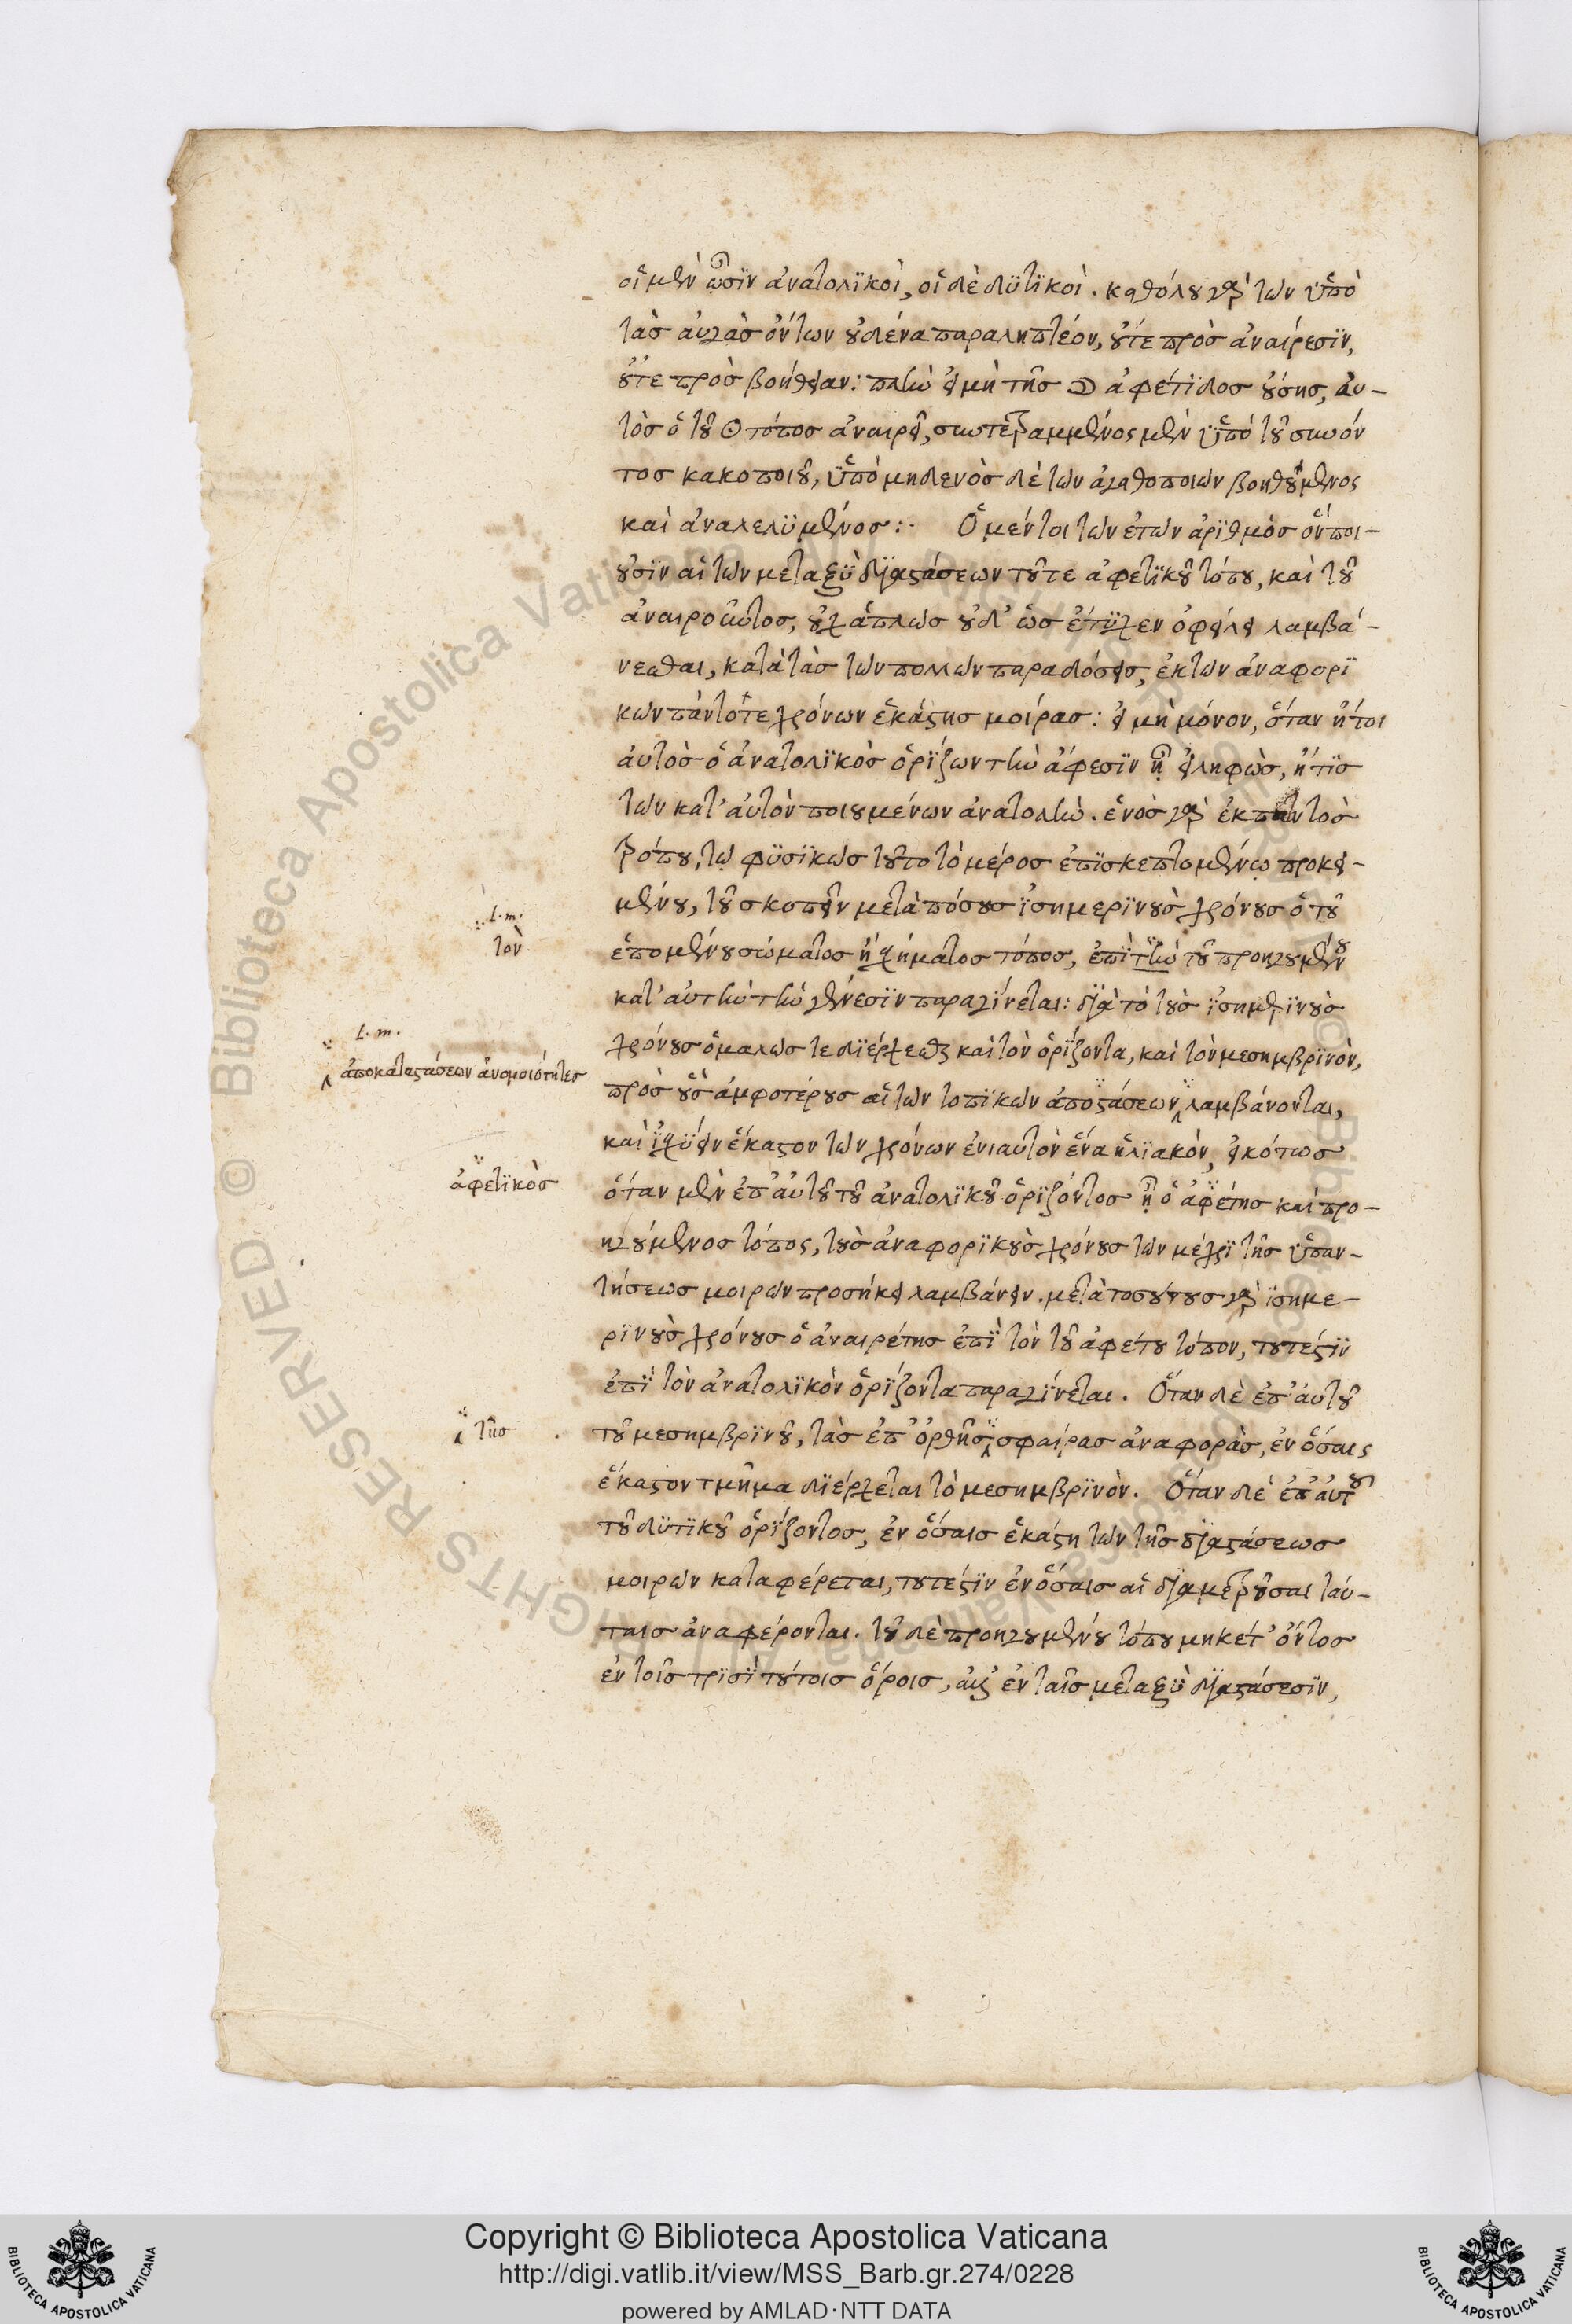 οἱ μὲν ὦσϊν ἀνατολϊκοὶ, οἱ δὲ δϋτϊκοὶ. καθόλου γὰρ τῶν ὑπὸ
τὰσ αὐγὰσ ὄντων οὐδένα παραληπτέον, οὔτε πρὸσ ἀναίρεσϊν,
οὔτε πρὸσ βοήθειαν: πλὴν εἰ μὴ τῆσ ☽ ἀφέτϊδοσ οὔσησ, αὐ-
τὸσ ὁ τοῦ ☉ τόποσ ἀναιρεῖ, συντετραμμένος μὲν ὑπὸ τοῦ συνόν
τοσ κακοποιοῦ, ὑπὸ μηδενὸσ δὲ τῶν ἀγαθοποιῶν βοηθούμενος
καὶ ἀναλελϋμένοσ:· Ὁ μέντοι τῶν ἐτῶν ἀρϊθμὸσ ὃν ποι-
οῦσϊν αἱ τῶν μεταξῢ δϊαστάσεων τοῦτε ἀφετϊκοῦ τόπου, καὶ τοῦ
ἀναιροῦντοσ, οὐχ ἁπλῶσ οὐδ' ὡσ ἔτϋχεν ὀφείλει λαμβά-
νεσθαι, κατὰ τὰσ τῶν πολλῶν παραδόσεισ, ἐκ τῶν ἀναφορϊ
κῶν πάντοτε χρόνων ἑκάστησ μοίρασ: εἰ μὴ μόνον, ὅταν ἤτοι
αὐτὸσ ὁ ἀνατολϊκὸσ ὁρΐζων τὴν ἄφεσϊν ᾖ εἰληφὼσ, ἤ τϊσ
τῶν κατ' αὐτὸν ποιουμένων ἀνατολήν. ἑνὸσ γὰρ ἐκ παντὸσ
τρόπου, τῷ φϋσϊκῶσ τοῦτο τὸ μέροσ ἐπϊσκεπτομένῳ προκει-
μένου, τοῦ σκοπεῖν μετὰ πόσουσ ἰσημερϊνοὺσ χρόνουσ ὁ τοῦ
ἑπομένου σώματοσ ἢ σχήματοσ τόποσ, ἐπὶ τὴν τοῦ προηγουμένου
κατ' αὐτὴν τὴν γένεσϊν παραγΐνεται: δϊὰ τὸ τοὺσ ϊσημερϊνοὺσ
χρόνουσ ὁμαλῶσ τε δϊέρχεσθαι καὶ τὸν ὁρΐζοντα, καὶ τὸν μεσημβρϊνὸν,
πρὸσ οὓσ ἀμφοτέρουσ αἱ τῶν τοπϊκῶν ἀποστάσεων λαμβάνονται,
καὶ ἰσχΰειν ἕκαστον τῶν χρόνων ἐνιαυτὸν ἕνα ἡλϊακὸν, εἰκότωσ
ὅταν μὲν ἐπ' αὐτοῦ τοῦ ἀνατολϊκοῦ ὁρϊζόντοσ ᾖ ὁ ἀφέτησ καὶ προ-
ηγούμενοσ τόπος, τοὺσ ἀναφορϊκοὺσ χρόνουσ τῶν μέχρϊ τῆσ ὑπαν-
τήσεωσ μοιρῶν προσήκει λαμβάνειν. μετὰ τοσούτουσ γὰρ ϊσημε-
ρϊνοὺσ χρόνουσ ὁ ἀναιρέτησ ἐπὶ τὸν τοῦ ἀφέτου τόπον, τουτέστϊν
ἐπὶ τὸν ἀνατολϊκὸν ὁρΐζοντα παραγΐνεται. Ὅταν δὲ ἐπ' αὐτοῦ
τοῦ μεσημβρϊνοῦ, τὰσ ἐπ' ὀρθῆσ σφαίρασ ἀναφορὰσ, ἐν ὅσαις
ἕκαστον τμῆμα δϊέρχεται τὸ μεσημβρϊνὸν. Ὅταν δὲ ἐπ' αὐτοῦ
τοῦ δϋτϊκοῦ ὁρΐζοντοσ, ἐν ὅσαισ ἑκάστη τῶν τῆσ δϊαστάσεωσ
μοιρῶν καταφέρεται, τουτέστϊν ἐν ὅσαισ αἱ δϊαμετροῦσαι ταύ-
ταισ ἀναφέρονται. τοῦ δὲ προηγουμένου τόπου μηκέτ' ὄντοσ
ἐν τοῖσ τρϊσὶ τούτοισ ὅροισ, ἀλλ' ἐν ταῖσ μεταξῢ δϊαστάσεσϊν,
L. m.
τὸν
L. m.
ἀποκαταστάσεων ἀνομοιότητεσ
ἀφετϊκὸσ
τῆσ
Copyright © Biblioteca Apostolica Vaticana
http://digi.vatlib.it/view/MSS_Barb.gr.274/0228
powered by AMLAD·NTT DATA